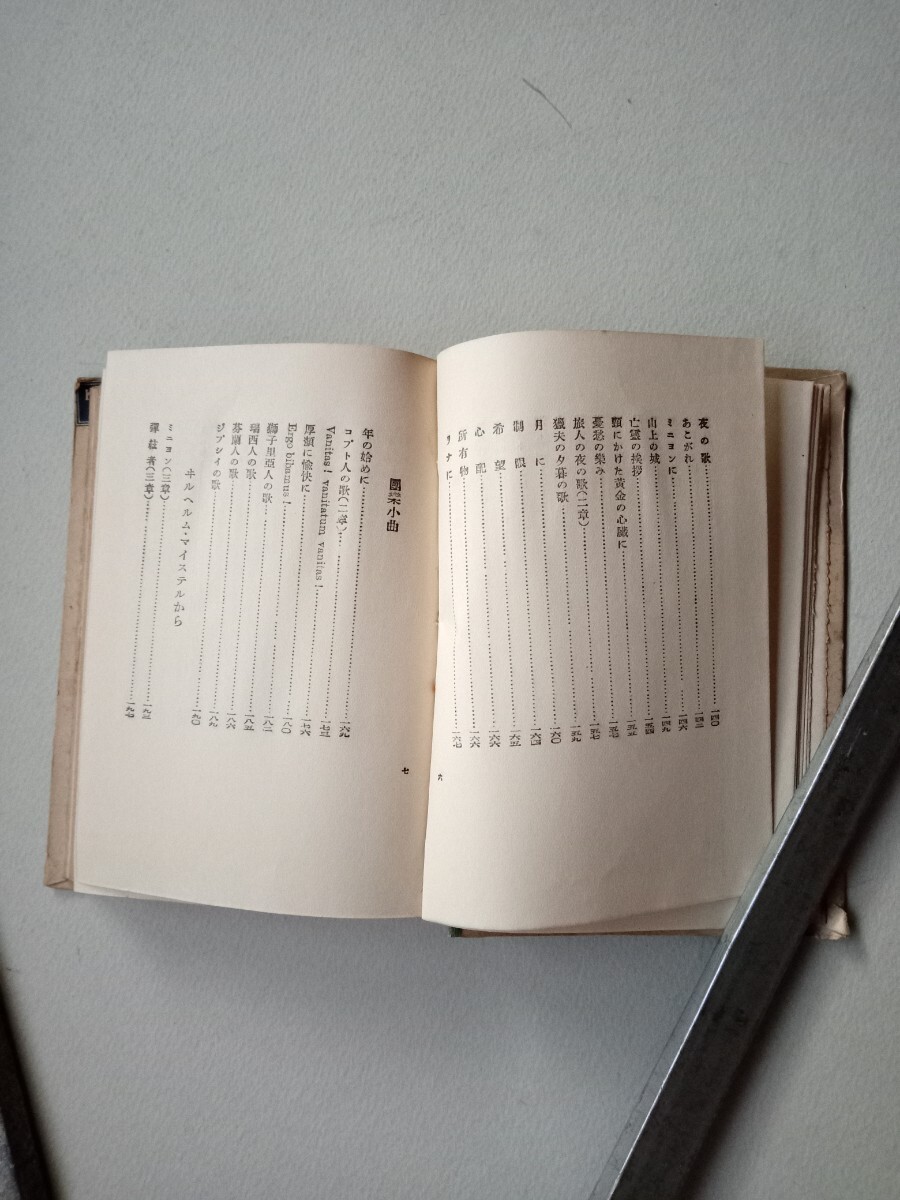 夜の歌……一四〇
あこがれ……一四二
ミニヨンに……一四六
山上の城……一四九
亡靈の挨拶……一五四
頸にかけた黄金の心臟に……一五五
憂愁の樂み……一五七
旅人の夜の歌(二章)……一五九
獵夫の夕暮の歌……一六〇
月に……一六四
制限……一六五
希望……一六六
心配……一六六
所有物……一六七
リナに
六
團欒小曲
年の始めに……一六九
コプト人の歌(二章)……一七三
Vanitas! vanitatum vanitas!……一七六
厚顏に愉快に
Ergo bibamus!……一八〇
獅子里亞人の歌……一八二
瑞西人の歌……一八五
芬蘭人の歌……一八六
ジプシイの歌……一八九
ヰルヘルム・マイステルから……一九〇
ミニヨン(三章)……一九三
彈絃者(三章)……一九七
七